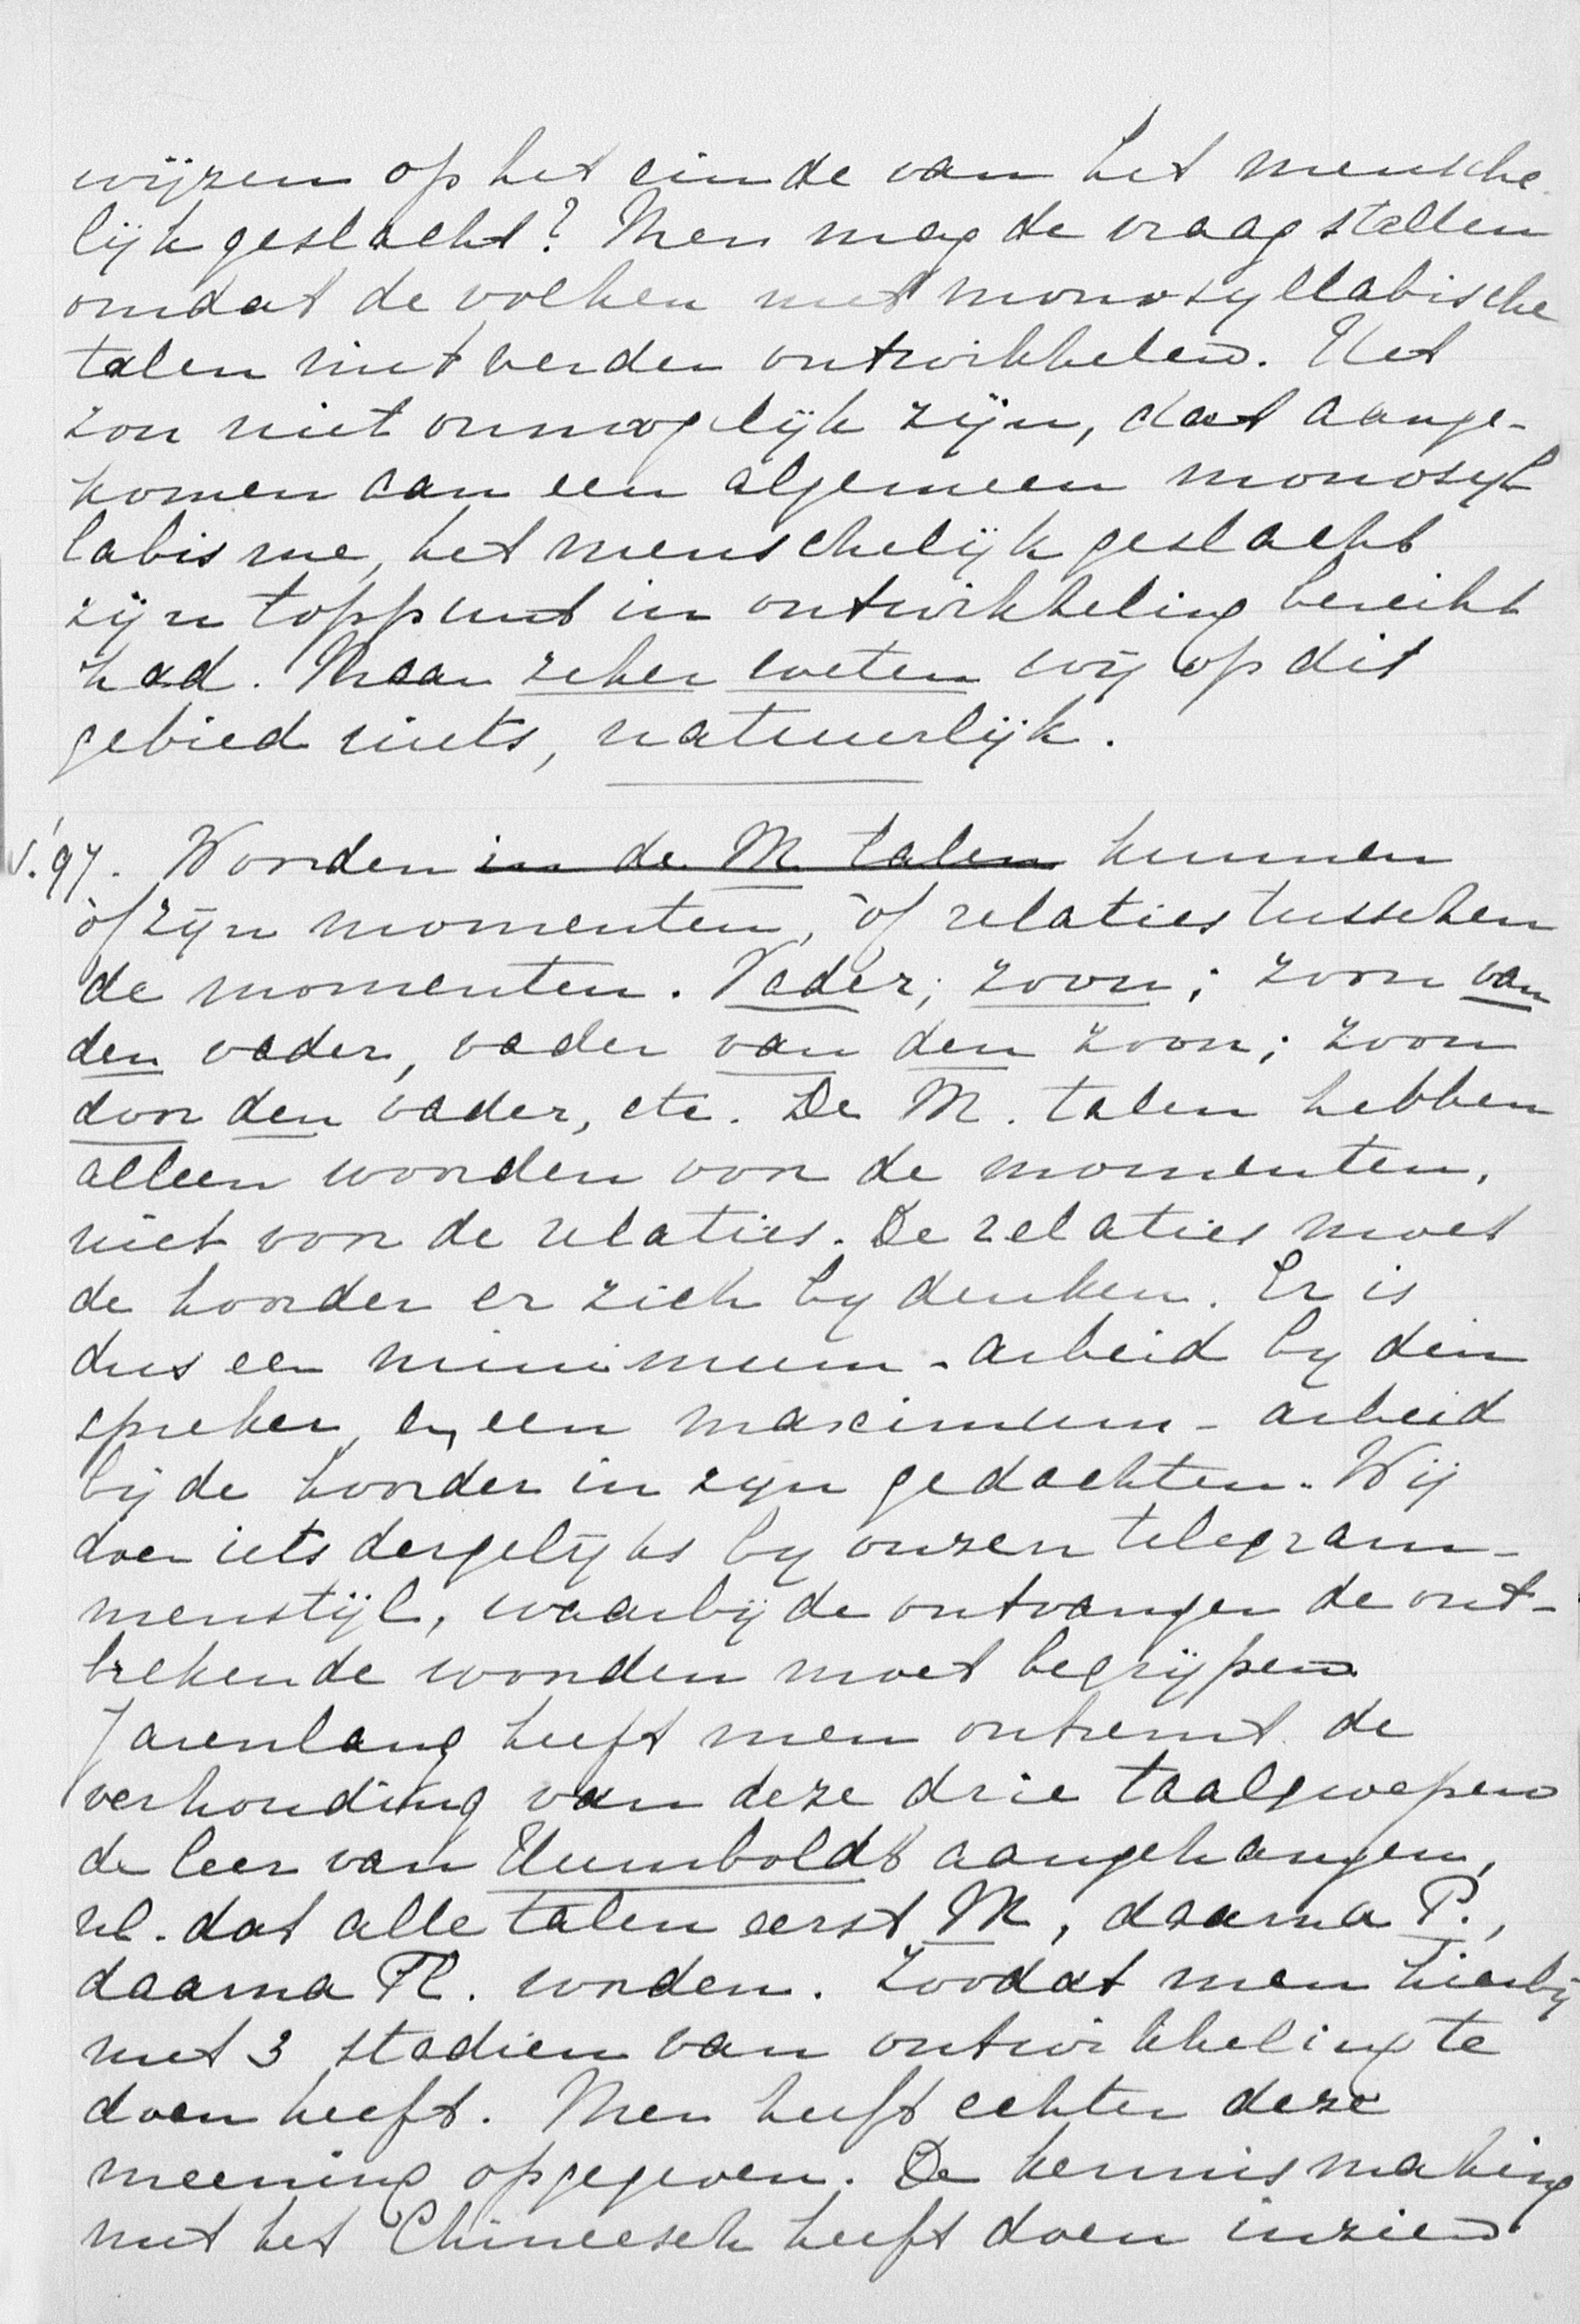 wijzen op het einde van het mensche
lijk geslacht? Men mag de vraag stellen
omdat de volken met monosyllabische
talen niet verder ontwikkelen. Het
zou niet onmogelijk zijn, dat aange-
komen aan een algemeen monosyl
labisme, het menschelijk geslacht
zijn toppunt in ontwikkeling bereikt
had. Maar zeker weten wij op dit
gebied niets, natuurlijk.
'97. Woorden in de M. talen kunnen
òf zijn momenten, òf relaties tusschen
de momenten. Vader; zoon; zoon van
den vader, vader van den zoon; zoon
door den vader, etc. De M. talen hebben
alleen woorden voor de momenten,
niet voor de relaties. De relaties moet
de hoorder er zich by denken. Er is
dus een minimum-arbeid by den
spreker, en een maximum-arbeid
bij de hoorder in zijn gedachten. Wij
doen iets dergelijks by onzen telegram-
menstijl, waarbij de ontvanger de ont-
brekende woorden moet begrijpen
Jarenlang heeft men omtrent de
verhouding van deze drie taalgroepen
de leer van Humboldt aangehangen,
nl. dat alle talen eerst M, daarna P.,
daarna Fl. worden. Zoodat men hierbij
met 3 stadien van ontwikkeling te
doen heeft. Men heeft echter deze
meening opgegeven. De kennismaking
met het Chineesch heeft doen inzien